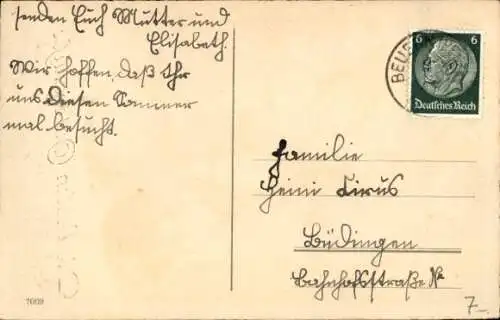 senden Euch Mutter und
Elisabeth.
Wir hoffen, daß Ihr
uns diesen Sommer
mal besucht.
6 6
Deutsches Reich
Familie
Heini Cirus
Büdingen
Bahnhofsstraße №
7609
7.-